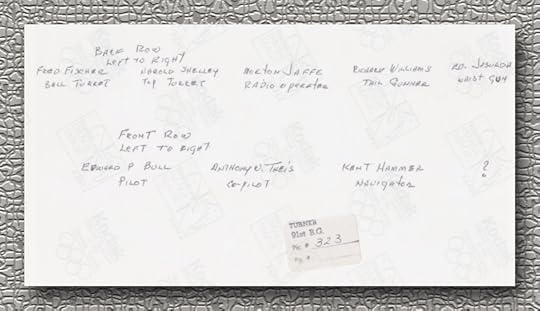 BACK ROW
LEFT TO RIGHT
FRED FISCHER HAROLD SHELLEY MORTON JAFFE RICHARD WILLIAMS ED.
BALL TURRET TOP TURRET RADIO OPERATOR TAIL GUNNER WAIST GUN
FRONT ROW
LEFT TO RIGHT
EDWARD P BULL ANTHONY W. THEIS KENT HAMMER ?
PILOT CO-PILOT NAVIGATOR
TURNER
91st B.G.
Pic # 323
Pg. #